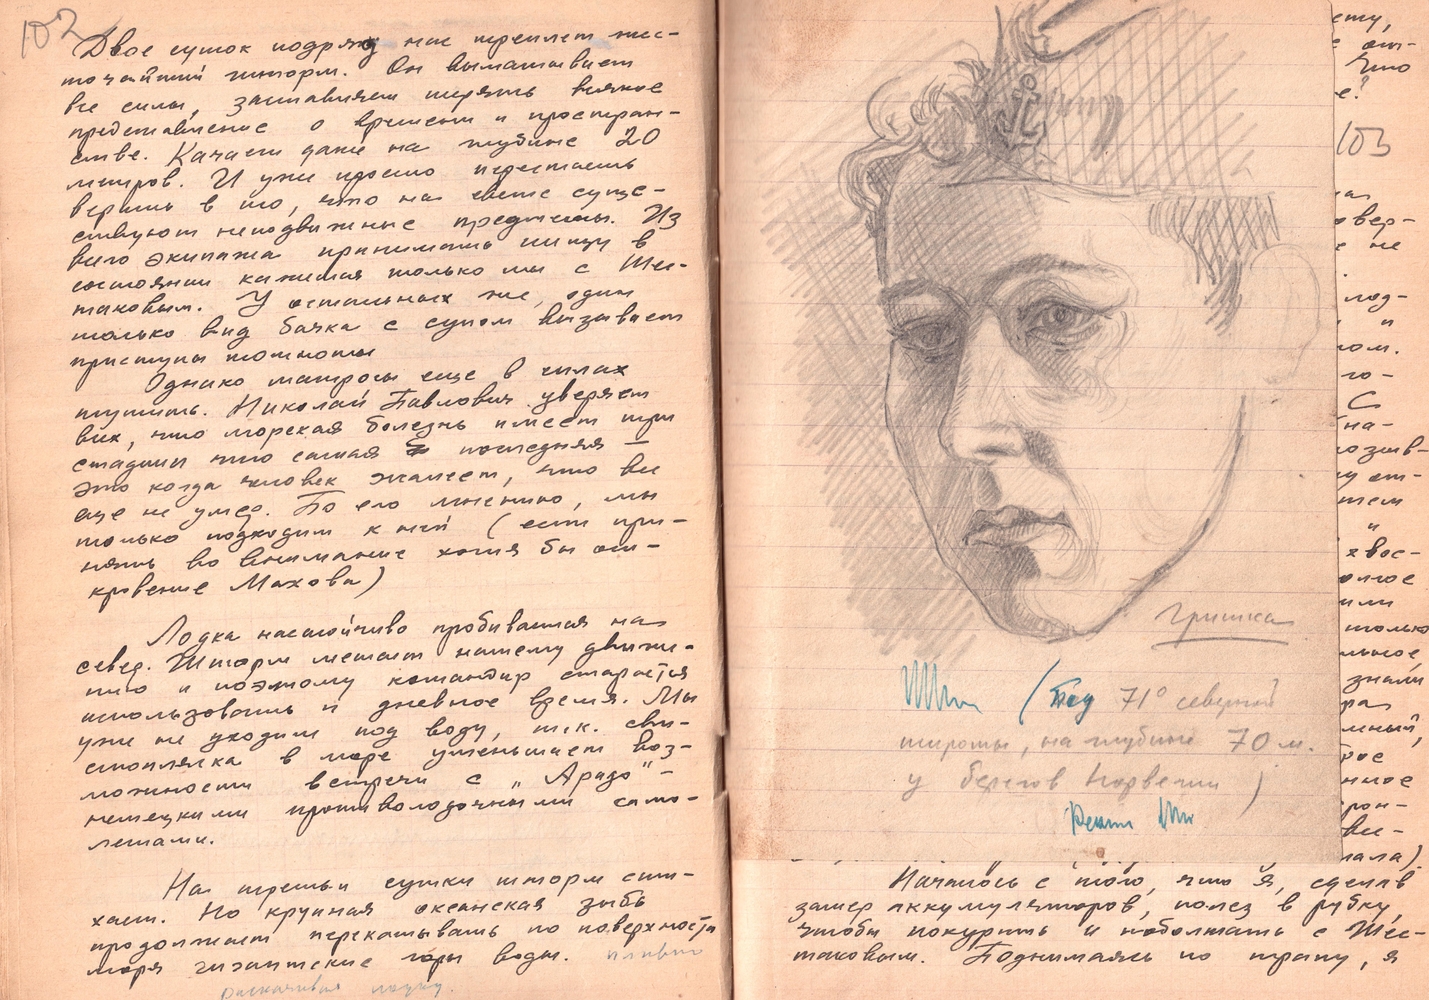 102
Двое суток подряд нас треплет жес-
точайший шторм. Он выматывает
все силы, заставляет терять всякое
представление о времени и простран-
стве. Качает даже на глубине 20
метров. И уже просто перестаешь
верить в то, что на свете суще-
ствуют неподвижные предметы. Из
всего экипажа принимать пищу в
состоянии кажется только мы с Шес-
таковым. У остальных же, один
только вид бачка с супом вызывает
приступы тошноты
Однако матросы еще в силах
шутить. Николай Павлович уверяет
всех, что морская болезнь имеет три
стадии что самая последняя —
это когда человек жалеет, что он
еще не умер. По его мнению, мы
только подходим к ней (если при-
нять во внимание хотя бы от-
кровение Махова)
Лодка настойчиво пробивается на
север. Шторм мешает нашему движе-
нию и поэтому командир старается
использовать и дневное время. Мы
уже не уходим под воду, т.к. сви-
стопляска в море уменьшает воз-
можности встречи с „Арадо" –
немецкими противолодочными само-
летами.
На третьи сутки шторм сти-
хает. Но крупная океанская зыбь
продолжает перекатывать по поверхности
моря гигантские горы воды. плавно
раскачивая лодку.
Гришка
(Под 71° северной
широты, на глубине 70 м.
у берегов Норвегии)
Началось с того, что я, сделав
замер аккумуляторов, полез в рубку,
чтобы покурить и поболтать с Шес-
таковым. Поднимаясь по трапу, я
ему,
что
е?
103
овер-
е не
лод-
и
ом.
го-
С
на-
и
хвос-
олгое
или
только
льное
знали
мный,
рое
нное
рон-
ала)